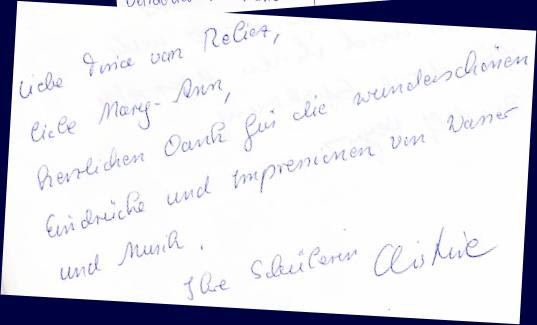 Liebe von
liebe Mary-Ann,
herzlichen Dank für die wunderschönen
Eindrücke und Impressionen von Wasser
und Musik.
Ihre Schülerin